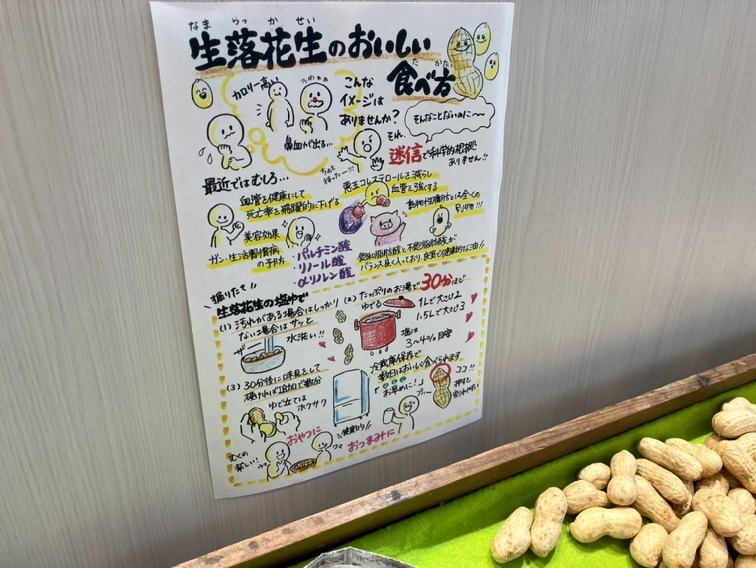 なま らっ か せい
生落花生のおいしい
た かた
食べ方
カロリー高い
鼻血が出る…
こんな
イメージは
ありませんか?
そんなことないのに〜
それ、
迷信で科学的根拠
ありません!!
最近ではむしろ…
血管を健康にして
死亡率を飛躍的に下げる
美容効果
ガン・生活習慣病
の予防
悪玉コレステロールを減らし
血管を強くする
・パルチミン酸
・リノール酸
・αリノレン酸
動物性脂肪とは全くの
別物!!!
飽和脂肪酸と不飽和脂肪酸が
バランス良く入っており、良質で健康的な油!!
掘りたて!!
生落花生の塩ゆで
(1) 汚れがある場合はしっかり
ない場合はサッと
水洗い!!
ザー
(2) たっぷりのお湯で30分ほど
ゆでる
1Lで大さじ2
1.5Lで大さじ3
塩は
3〜4%目安
(3) 30分後に味見をして
硬ければ追加で数分
ゆで立ては
ホクサク
むくの
楽しい!
おやつに
冷蔵庫保存で
数日はおいしく食べられます
お早めに!
ココ!!
押すと
おつまみに